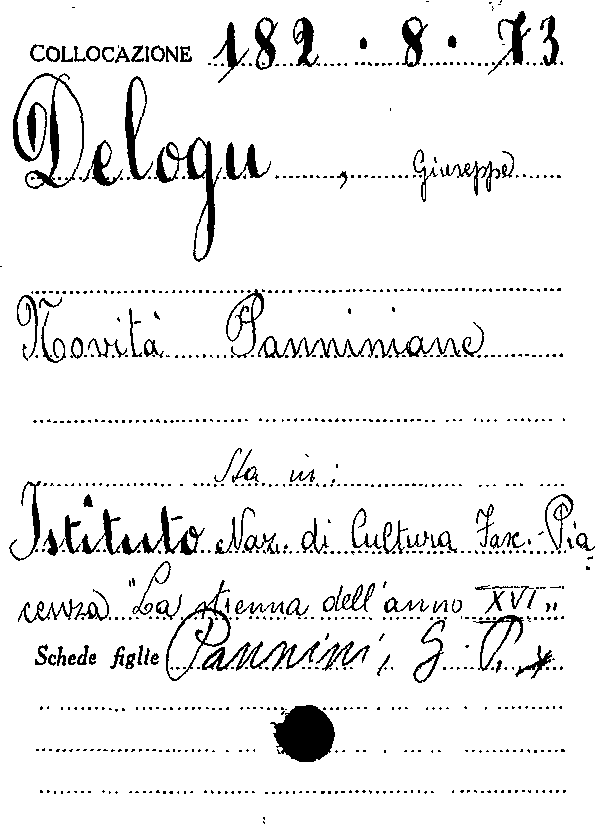 COLLOCAZIONE 182.8.73
Delogu, Giuseppe
Novità Panniniane
Sta in:
Istituto Naz. di Cultura Fasc. Pia
cenza "La strenna dell'anno XVI"
Schede figlie Pannini, G. P.